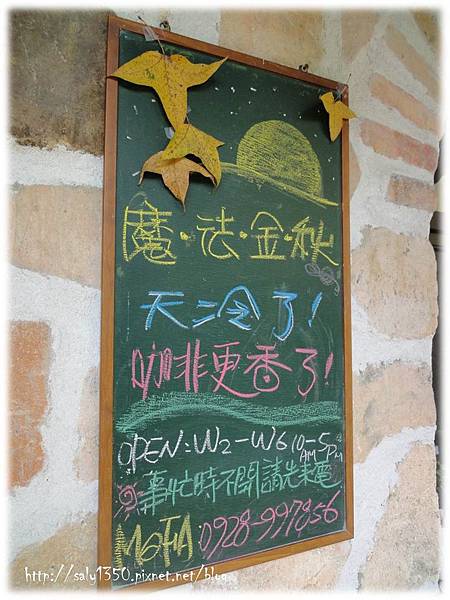 魔·法·金·秋
天冷了!
咖啡更香了!
OPEN:W2-W6 10AM-5PM
忙時不開請先來電
MOFA:0928-997856
http://saly1350.pixnet.net/blog